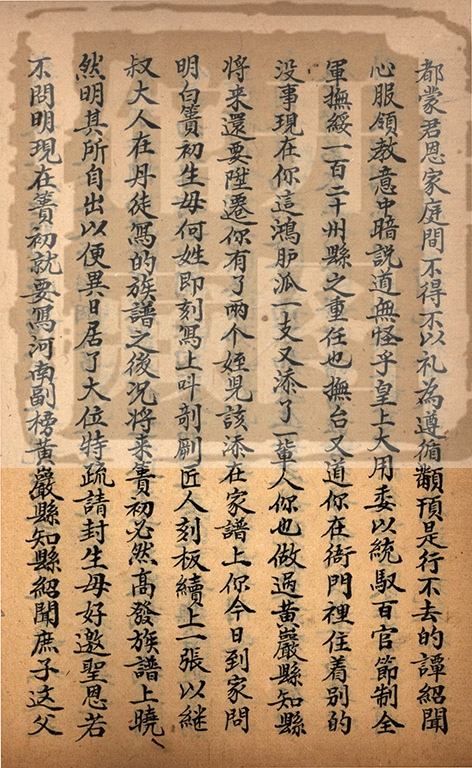 都蒙君恩家庭間不得不以礼為遵循顢頇是行不去的譚紹聞
心服領教意中暗説道無怪乎皇上大用委以統馭百官節制全
軍撫綏一百二十州縣之重任也撫台又道你在衙門裡住着别的
没事現在你這鴻胪派一支又添了一輩人你也做過黄巖縣知縣
将来還要陞遷你有了两个姪兒該添在家譜上你今日到家問
明白簣初生母何姓即刻寫上呌剞劂匠人刻板續上一張以継
叔大人在丹徒寫的族譜之後况将来簣初必然髙發族譜上曉
然明其所自出以便異日居了大位特疏請封生母好邀聖恩若
不問明現在簣初就要寫河南副榜黄巖縣知縣紹聞庶子这父